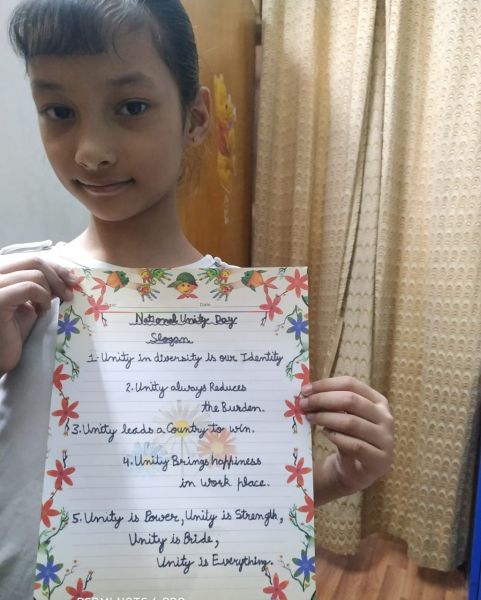 Date
National Unity Day
Slogan
1. Unity in diversity is our Identity
2. Unity always Reduces
the Burden.
3. Unity leads a Country to win.
4. Unity Brings happiness
in work place.
5. Unity is Power, Unity is Strength,
Unity is Pride,
Unity is Everything.
REDMI NOTE 6 PRO